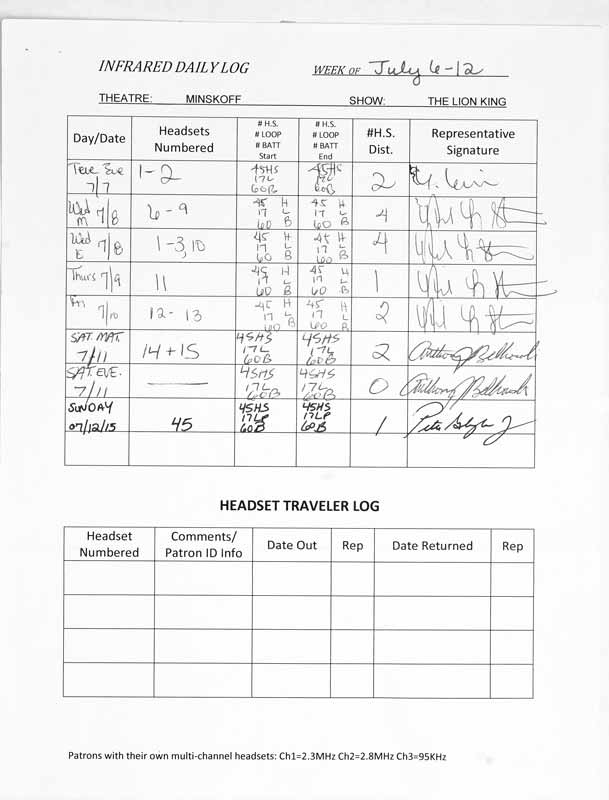 INFRARED DAILY LOG WEEK OF July 6-12
THEATRE: MINSKOFF SHOW: THE LION KING
Day/Date Headsets Numbered # H.S. # LOOP # BATT Start # H.S. # LOOP # BATT End #H.S. Dist. Representative Signature
Tue Eve 7/7 1-2 45HS 17L 60B 45HS 17L 60B 2
Wed M 7/8 6-9 45 H 17 L 60 B 45 H 17 L 60 B 4
Wed E 7/8 1-3,10 45 H 17 L 60 B 45 H 17 L 60 B 4
Thurs 7/9 11 45 H 17 L 60 B 45 H 17 L 60 B 1
Fri 7/10 12-13 45 H 17 L 60 B 45 H 17 L 60 B 2
SAT. MAT. 7/11 14+15 45HS 17L 60B 45HS 17L 60B 2 Anthony
SAT. EVE. 7/11 — 45HS 17L 60B 45HS 17L 60B 0 Anthony
SUNDAY 07/12/15 45 45HS 17LP 60B 45HS 17LP 60B 1 Peter
HEADSET TRAVELER LOG
Headset Numbered Comments/ Patron ID Info Date Out Rep Date Returned Rep
Patrons with their own multi-channel headsets: Ch1=2.3MHz Ch2=2.8MHz Ch3=95KHz